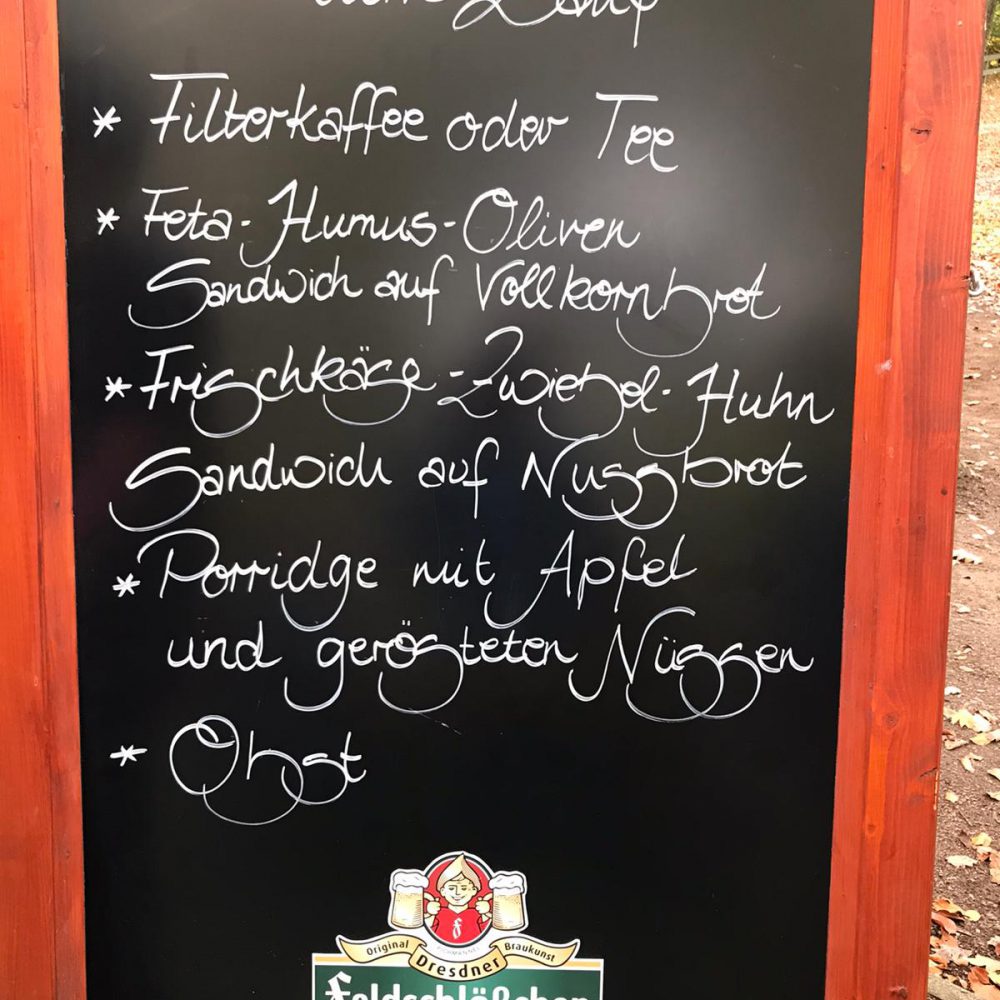 * Filterkaffee oder Tee
* Feta-Humus-Oliven
Sandwich auf Vollkornbrot
* Frischkäse-Zwiebel-Huhn
Sandwich auf Nussbrot
* Porridge mit Apfel
und gerösteten Nüssen
* Obst
Original Dresdner Braukunst
Feldschlößchen